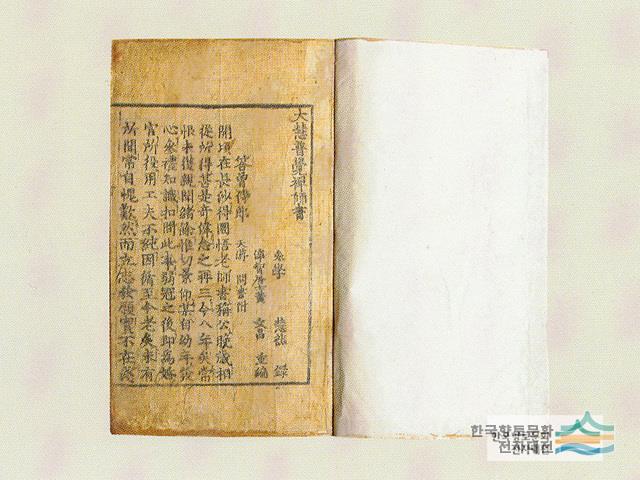 大慧普覺禪師書
參學 慧然 錄
淨智居士黃 文昌 重編
答曾侍郎 天游 問書附
開頃在長沙得圜悟老師書稱公晚歲相
從所得甚是奇偉念之再三今八年矣常
恨未獲親聞緖餘惟切景仰某自幼年發
心參禮知識扣問此事弱冠之後卽爲婚
宦所役用工夫不純因循至今老矣未有
所聞常自愧歎然而立志發願實不在淺
한국향토문화
전자대전